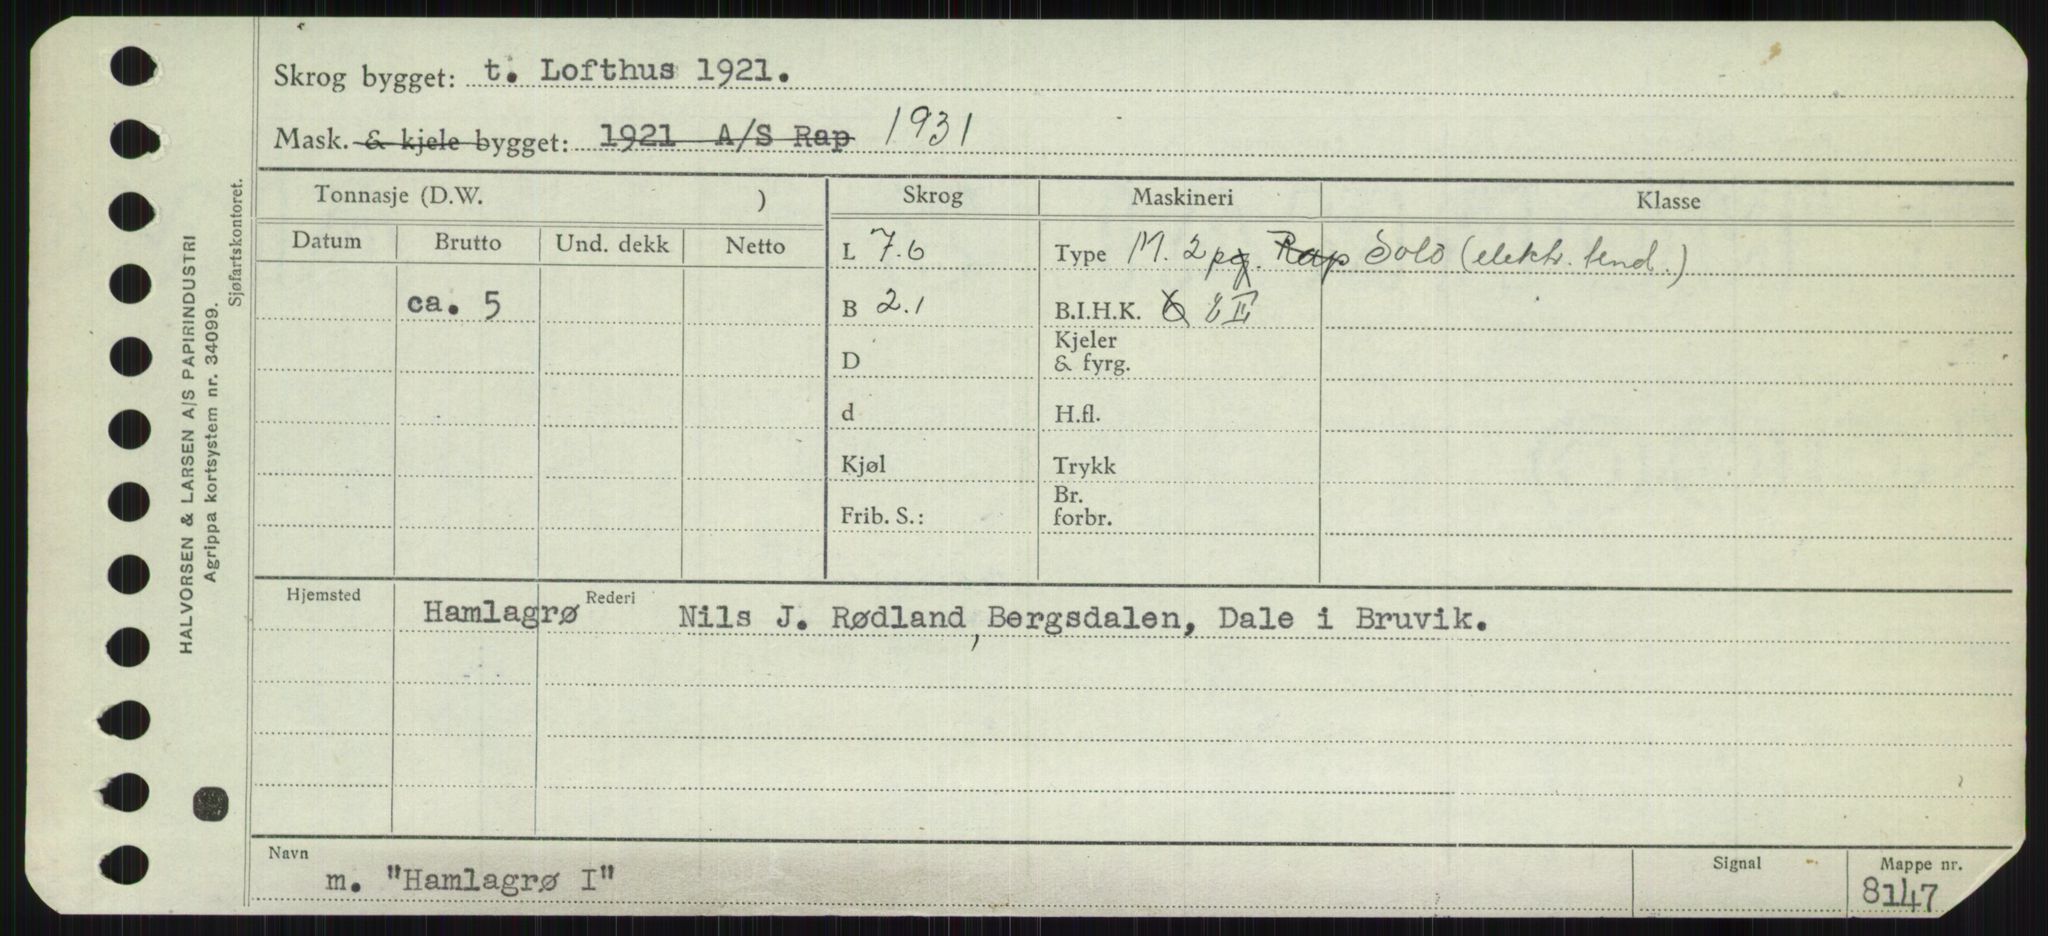 Skrog bygget: t. Lofthus 1921.
Mask. & kjele bygget: 1921 A/S Rap 1931
Tonnasje (D.W. )
Skrog
Maskineri
Klasse
Datum
Brutto
Und. dekk
Netto
L 7.6
Type M. 2 pg. Rap Solo (elektr. tend.)
ca. 5
B 2.1
B.I.H.K.
Kjeler
& fyrg.
D
d
H.fl.
Kjøl
Trykk
Br.
forbr.
Frib. S.:
Hjemsted
Hamlagrø
Rederi
Nils J. Rødland, Bergsdalen, Dale i Bruvik.
Navn
m. "Hamlagrø I"
Signal
Mappe nr.
8147
HALVORSEN & LARSEN A/S PAPIRINDUSTRI
Agrippa kortsystem nr. 34099.
Sjøfartskontoret.